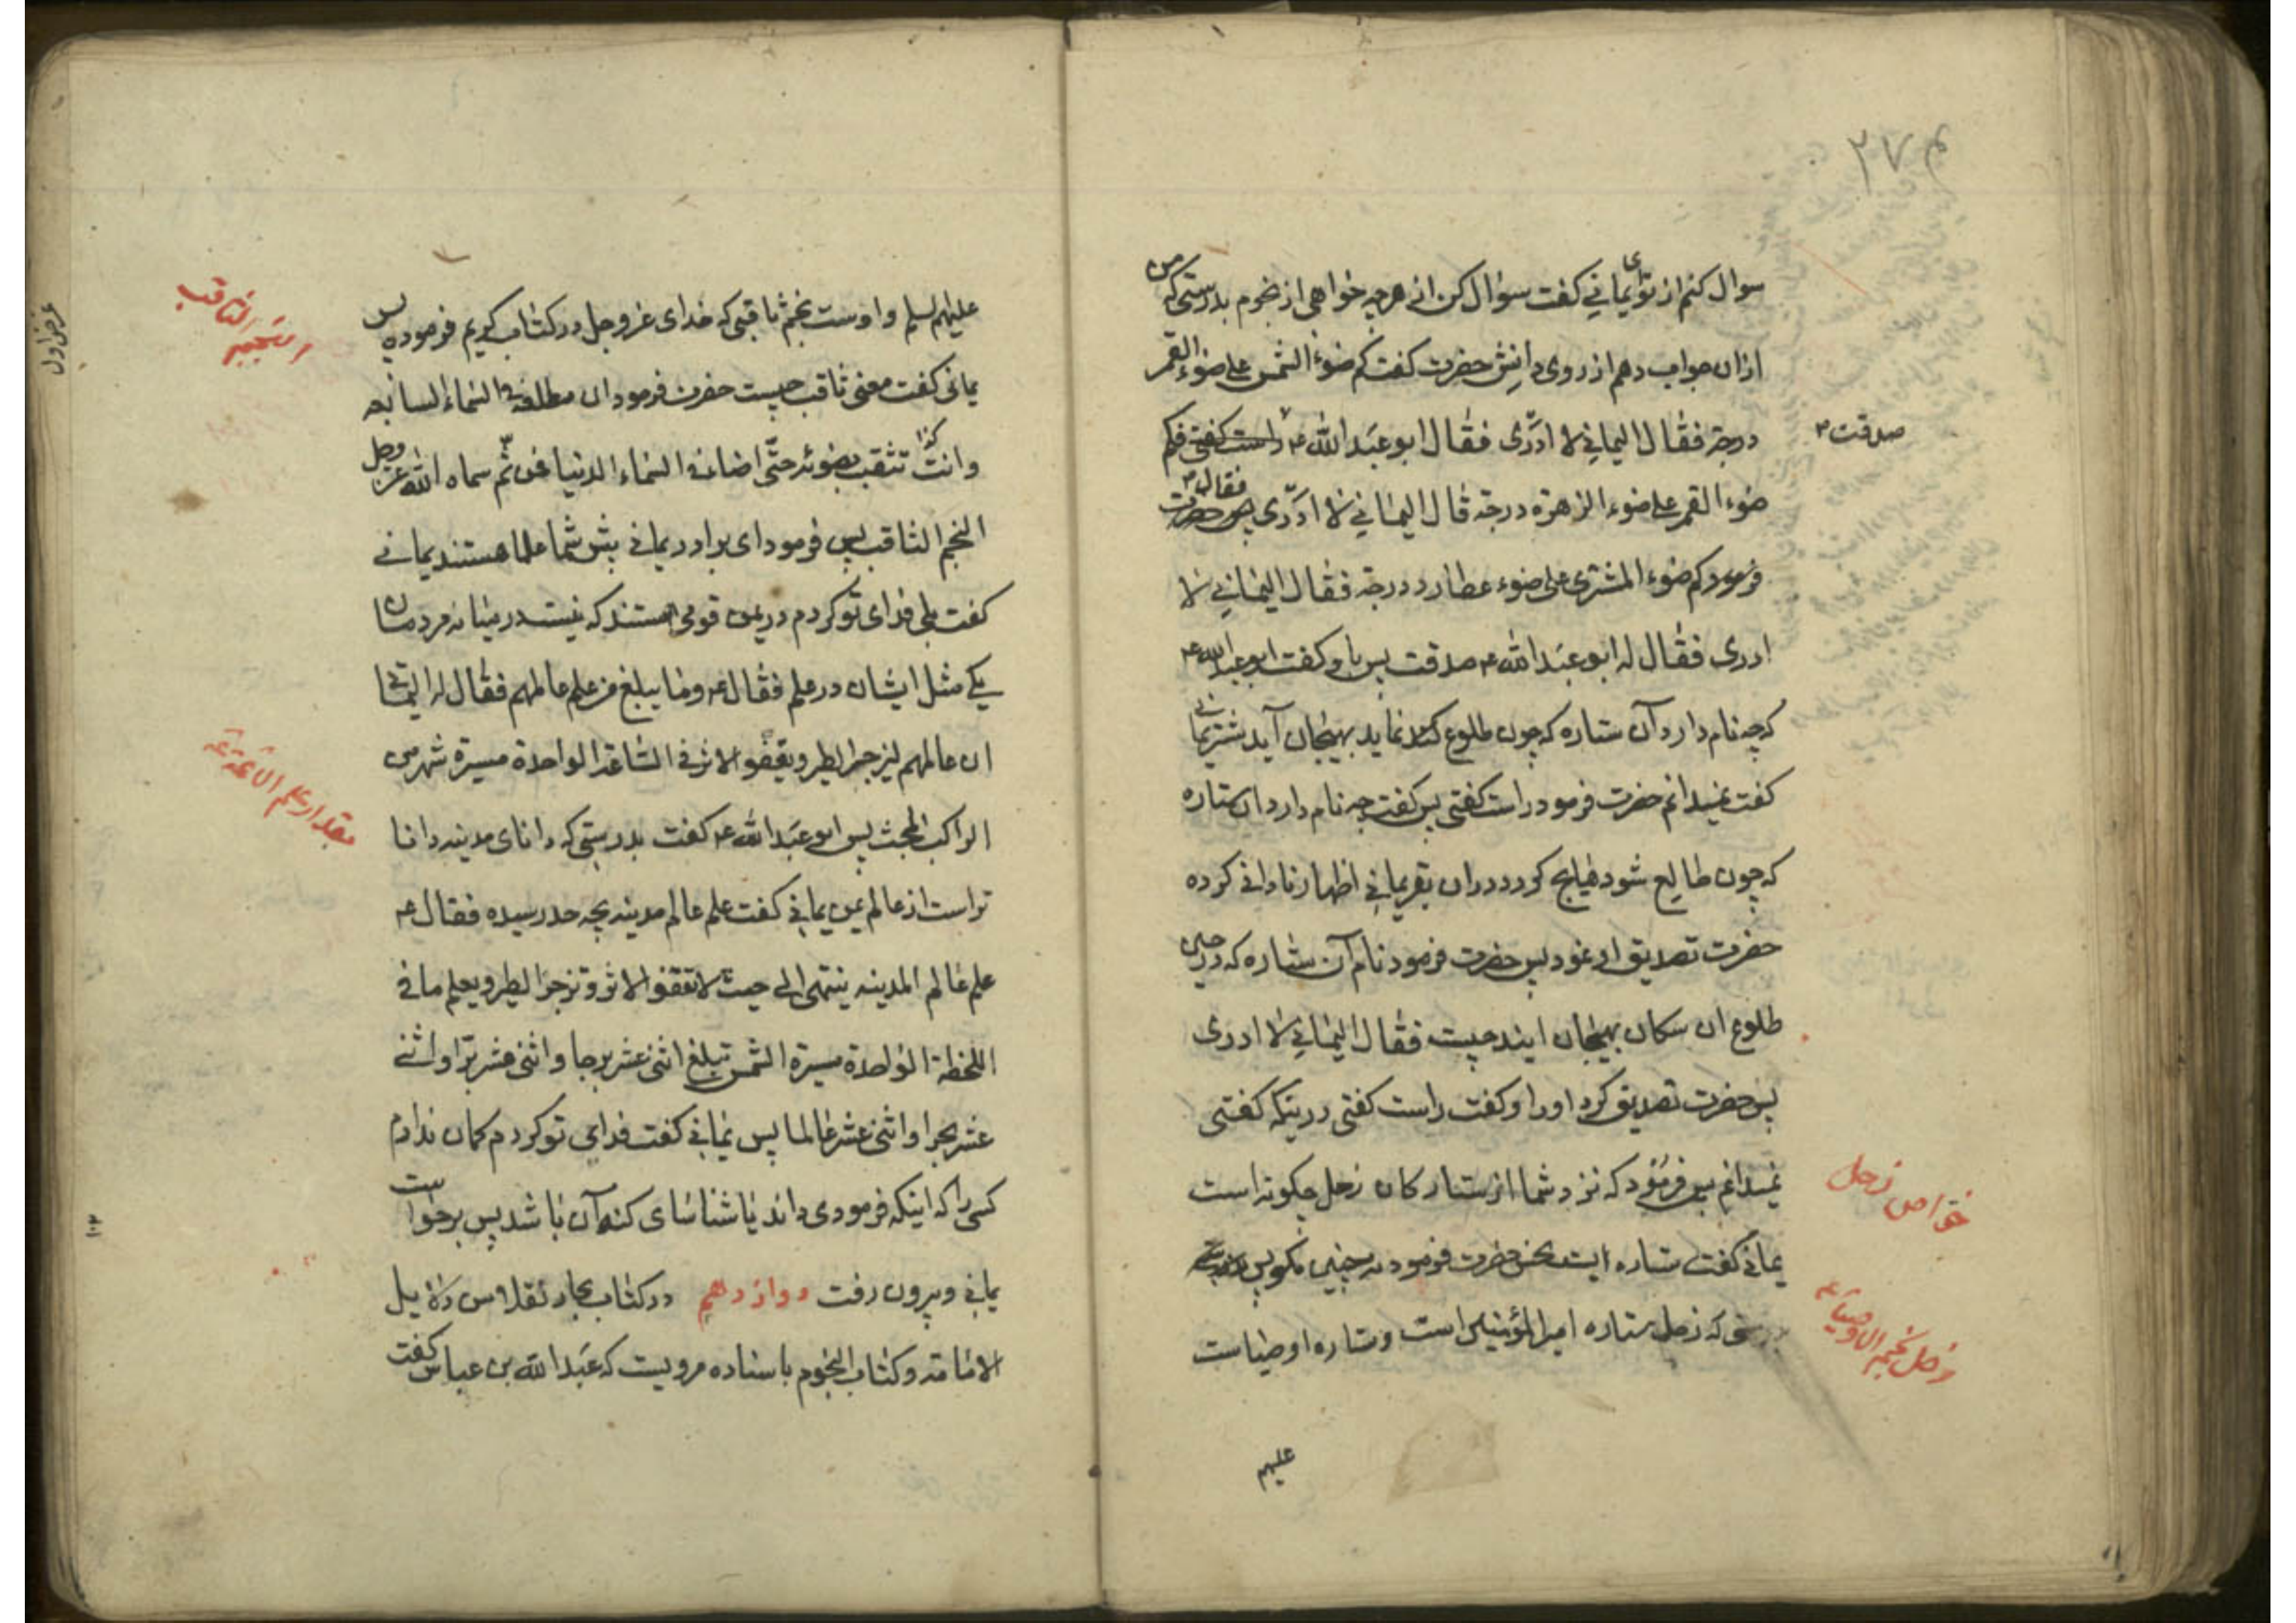 ۲۷م
سوال کنم از تو ای یمانی کفت سؤال کن انی هرچه خواهی از نجوم بدرستی که من
ازان جواب دهم از روی دانش حضرت کفت کم ضوء الشمس علی ضوء القمر
درجة فقال الیمانی لا ادری فقال ابو عبد الله ع راست کفتی فکم
صدقت
ضوء القمر علی ضوء الزهرة درجة قال الیمانی لا ادری فقال حضرت
فرمود کم ضوء المشتری علی ضوء عطارد درجة فقال الیمانی لا
ادری فقال له ابو عبد الله ع صدقت پس باو کفت ابو عبد الله ع
که چه نام دارد آن ستاره که چون طلوع نماید بهیجان آید شتر یمانی
کفت نمیدانم حضرت فرمود راست کفتی پس کفت چه نام دارد ان ستاره
که چون طالع شود بقر یمانی اظهار نادانی کرده
حضرت تصدیق او نمود پس حضرت فرمود نام آن ستاره که در حین
طلوع ان سکان بهیجان ایند چیست فقال الیمانی لا ادری
پس حضرت تصدیق کرد اورا و کفت راست کفتی دریکه کفتی
نمیدانم پس فرمود که نزد شما از ستارکان زحل چکونه است
خواص زحل
یمانی کفت ستاره ایست نحس حضرت فرمود نه چنین مکو پس
بدرستی که زحل ستاره امیر المؤمنین است و ستاره اوصیاست
زحل نجم الاوصیاء ع
علیهم
علیهم السلم و اوست نجم ثاقبی که خدای عز و جل در کتاب کریم فرموده پس
النجم الثاقب
یمانی کفت معنی ثاقب چیست حضرت فرمود ان مطلعه فی السماء السابعه
وانت کذا تثقب بضوئه حتّی اضاء فی السماء الدنیا فمن ثم سماه الله عز وجل
النجم الثاقب پس فرمود ای برادر یمانی پیش شما علما هستند یمانی
کفت بلی فدای تو کردم در یمن قومی هستند که نیست در میانه مردمان
یکی مثل ایشان در علم فقال ع وما یبلغ من علم عالمهم فقال له الیمانی
ان عالمهم لیزجر الطیر ویقفو الاثر فی الساعة الواحدة مسیرة شهر من
مقدار علم الائمة ع
الراکب المجث پس ابو عبد الله ع کفت بدرستی که دانای مدینه دانا
تر است از عالم یمن یمانی کفت علم عالم مدینه بچه حد رسیده فقال ع
علم عالم المدینه ینتهی الی حیث لا تقفو الاثر وتزجر الطیر ویعلم ما فی
اللحظة الواحدة مسیرة الشمس تبلغ اثنی عشر برجا واثنی عشر برّا واثنی
عشر بحرا واثنی عشر عالما پس یمانی کفت فدای تو کردم کمان ندارم
کسی را که اینکه فرمودی داند یا شناسای کنه آن باشد پس برخواست
یمانی و بیرون رفت دوازدهم در کتاب بحار نقلا من دلائل
الامامة و کتاب النجوم باسناده مرویست که عبد الله بن عباس کفت
عرض اول